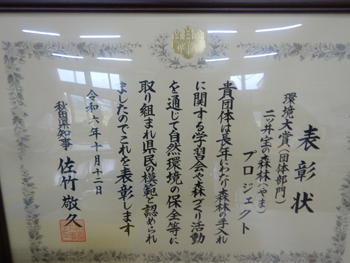 表彰状
環境大賞（団体部門）
二ツ井宝の森林（やま）
プロジェクト
貴団体は長年にわたり森林の手入れ
に関する学習会や森づくり活動
を通じて自然環境の保全等に
取り組まれ県民の模範と認められ
ましたのでこれを表彰します
令和六年十月十二日
秋田県知事 佐竹敬久